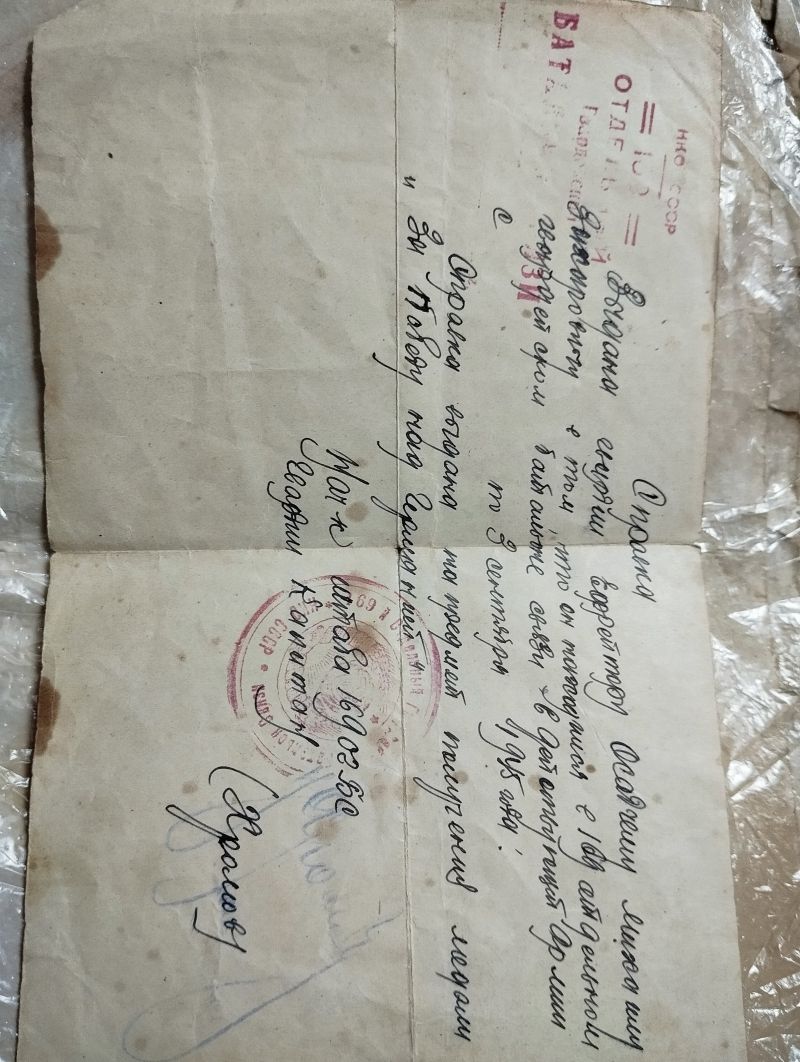 НКО СССР
= 169 =
ОТДЕЛЬНЫЙ
БАТ
Справка
Выдана гвардии Ефрейтору Осадчему Михаилу
о том что он находился в 169 отдельном
гвардейском батальоне связи в действующей Армии
с по 3 сентября 1945 года.
Справка выдана на предмет получения медали
"За Победу над Германией"
штаба 169 ОГБС
Гвардии Капитан
(Храмов)